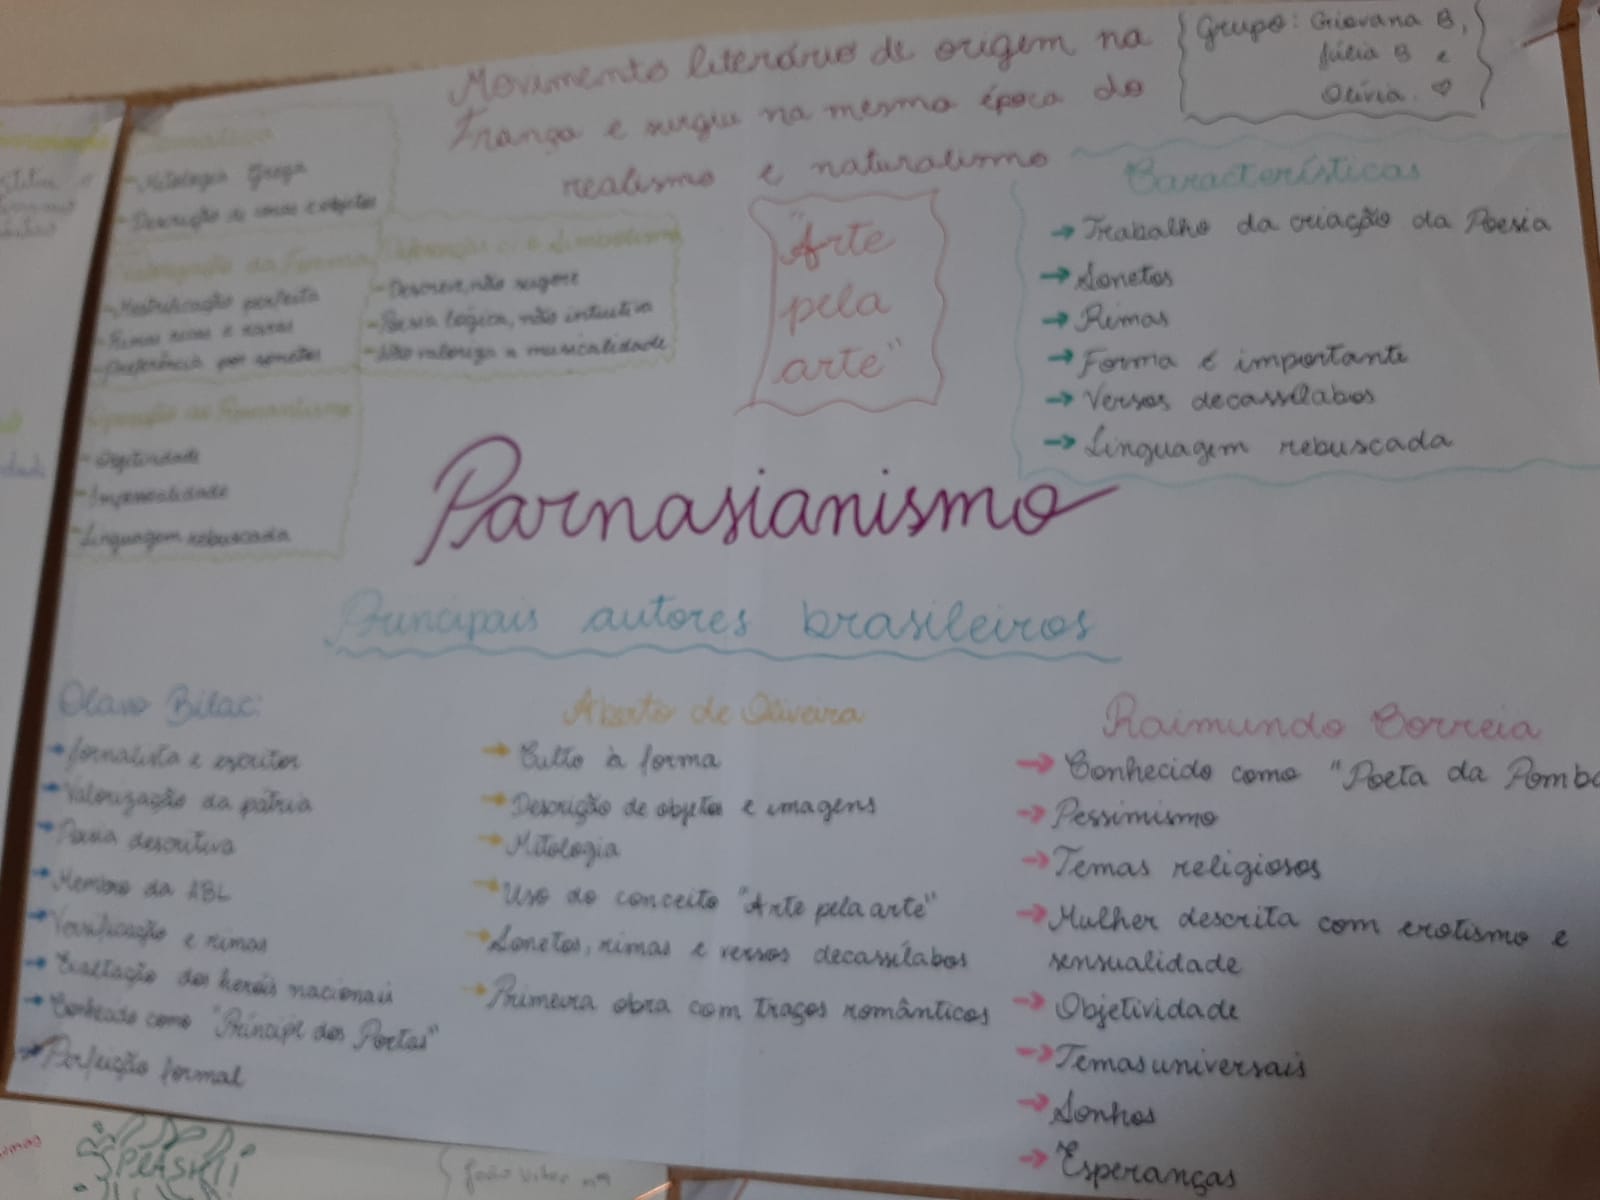 Movimento literário de origem na
França e surgiu na mesma época do
realismo e naturalismo
Grupo: Giovana B,
Júlia B e
Olívia. ♡
Temática
- Mitologia Grega
- Descrição de cenas e objetos
Valorização da Forma
- Metrificação perfeita
- Rimas ricas e raras
- Preferência por sonetos
Simbolismo
- Descreve, não sugere
- Poesia lógica, não intuitiva
- Não valoriza a musicalidade
Oposição ao Romantismo
- Objetividade
- Impessoalidade
- Linguagem rebuscada
"Arte
pela
arte"
Características
→ Trabalho da criação da Poesia
→ Sonetos
→ Rimas
→ Forma é importante
→ Versos decassílabos
→ Linguagem rebuscada
Parnasianismo
Principais autores brasileiros
Olavo Bilac:
→ Jornalista e escritor
→ Valorização da pátria
→ Poesia descritiva
→ Membro da ABL
→ Versificação e rimas
→ Exaltação dos heróis nacionais
→ Conhecido como "Príncipe dos Poetas"
→ Perfeição formal
Aberto de Oliveira
→ Culto à forma
→ Descrição de objetos e imagens
→ Mitologia
→ Uso do conceito "Arte pela arte"
→ Sonetos, rimas e versos decassílabos
→ Primeira obra com traços românticos
Raimundo Correia
→ Conhecido como "Poeta da Pomba
→ Pessimismo
→ Temas religiosos
→ Mulher descrita com erotismo e
sensualidade
→ Objetividade
→ Temas universais
→ Sonhos
→ Esperanças
SPLASH!!
João Vitor nº